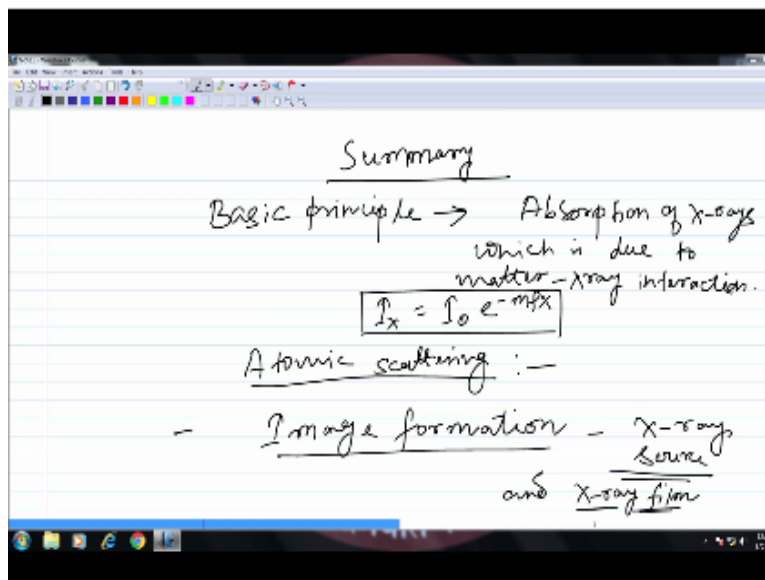 Summary
Basic principle → Absorption of x-rays
which is due to
matter-xray interaction.
Iₓ = I₀ e^-mρx
Atomic scattering :—
- Image formation - x-ray
source
and x-ray film